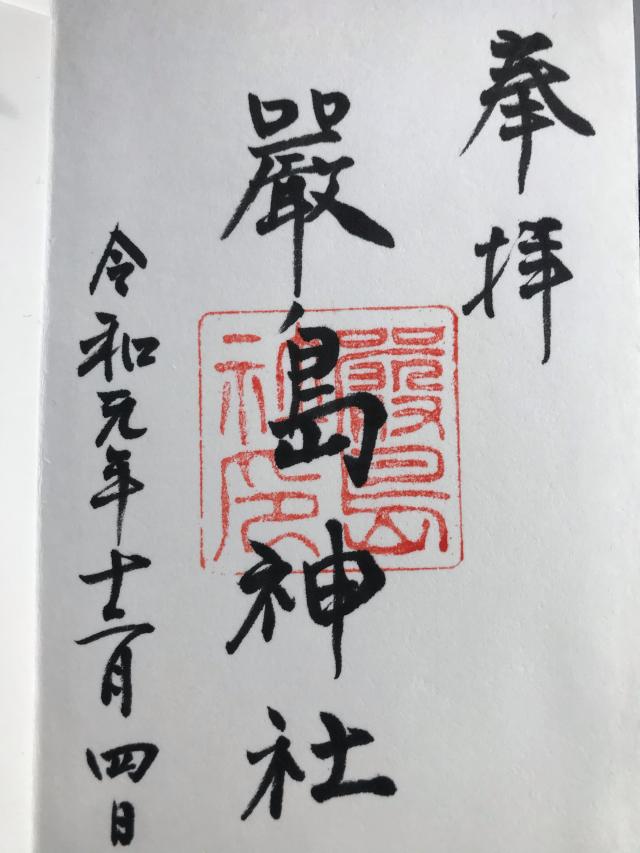 奉拝
嚴島神社
令和元年十二月四日
嚴島
印